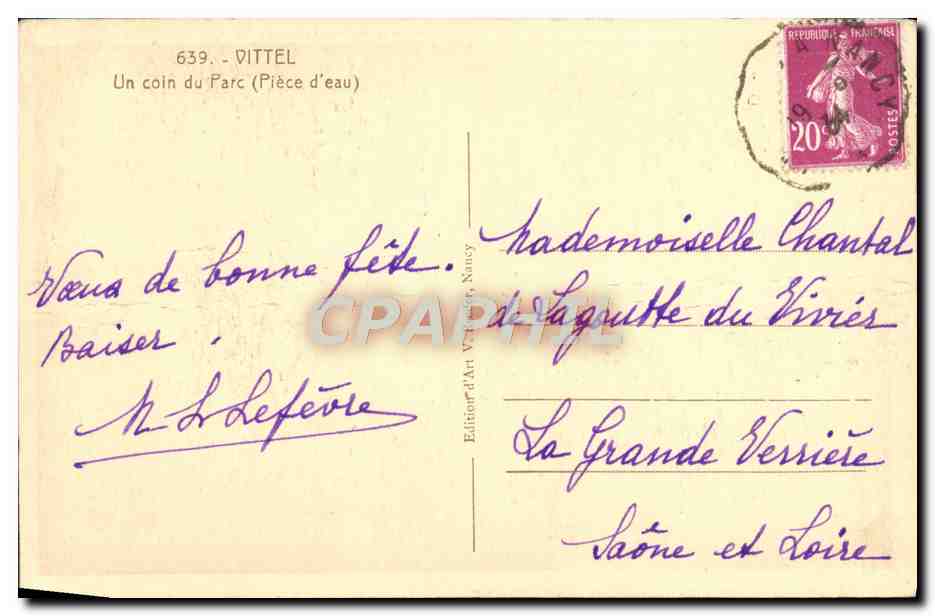 639. - VITTEL
Un coin du Parc (Pièce d'eau)
Vœux de bonne fête.
Baiser.
M L Lefèvre
Edition d'Art Nancy
REPUBLIQUE FRANÇAISE
20c
POSTES
A NANCY
19
Mademoiselle Chantal
de Lagoutte du Vivier
La Grande Verrière
Saône et Loire
CPAPHIL